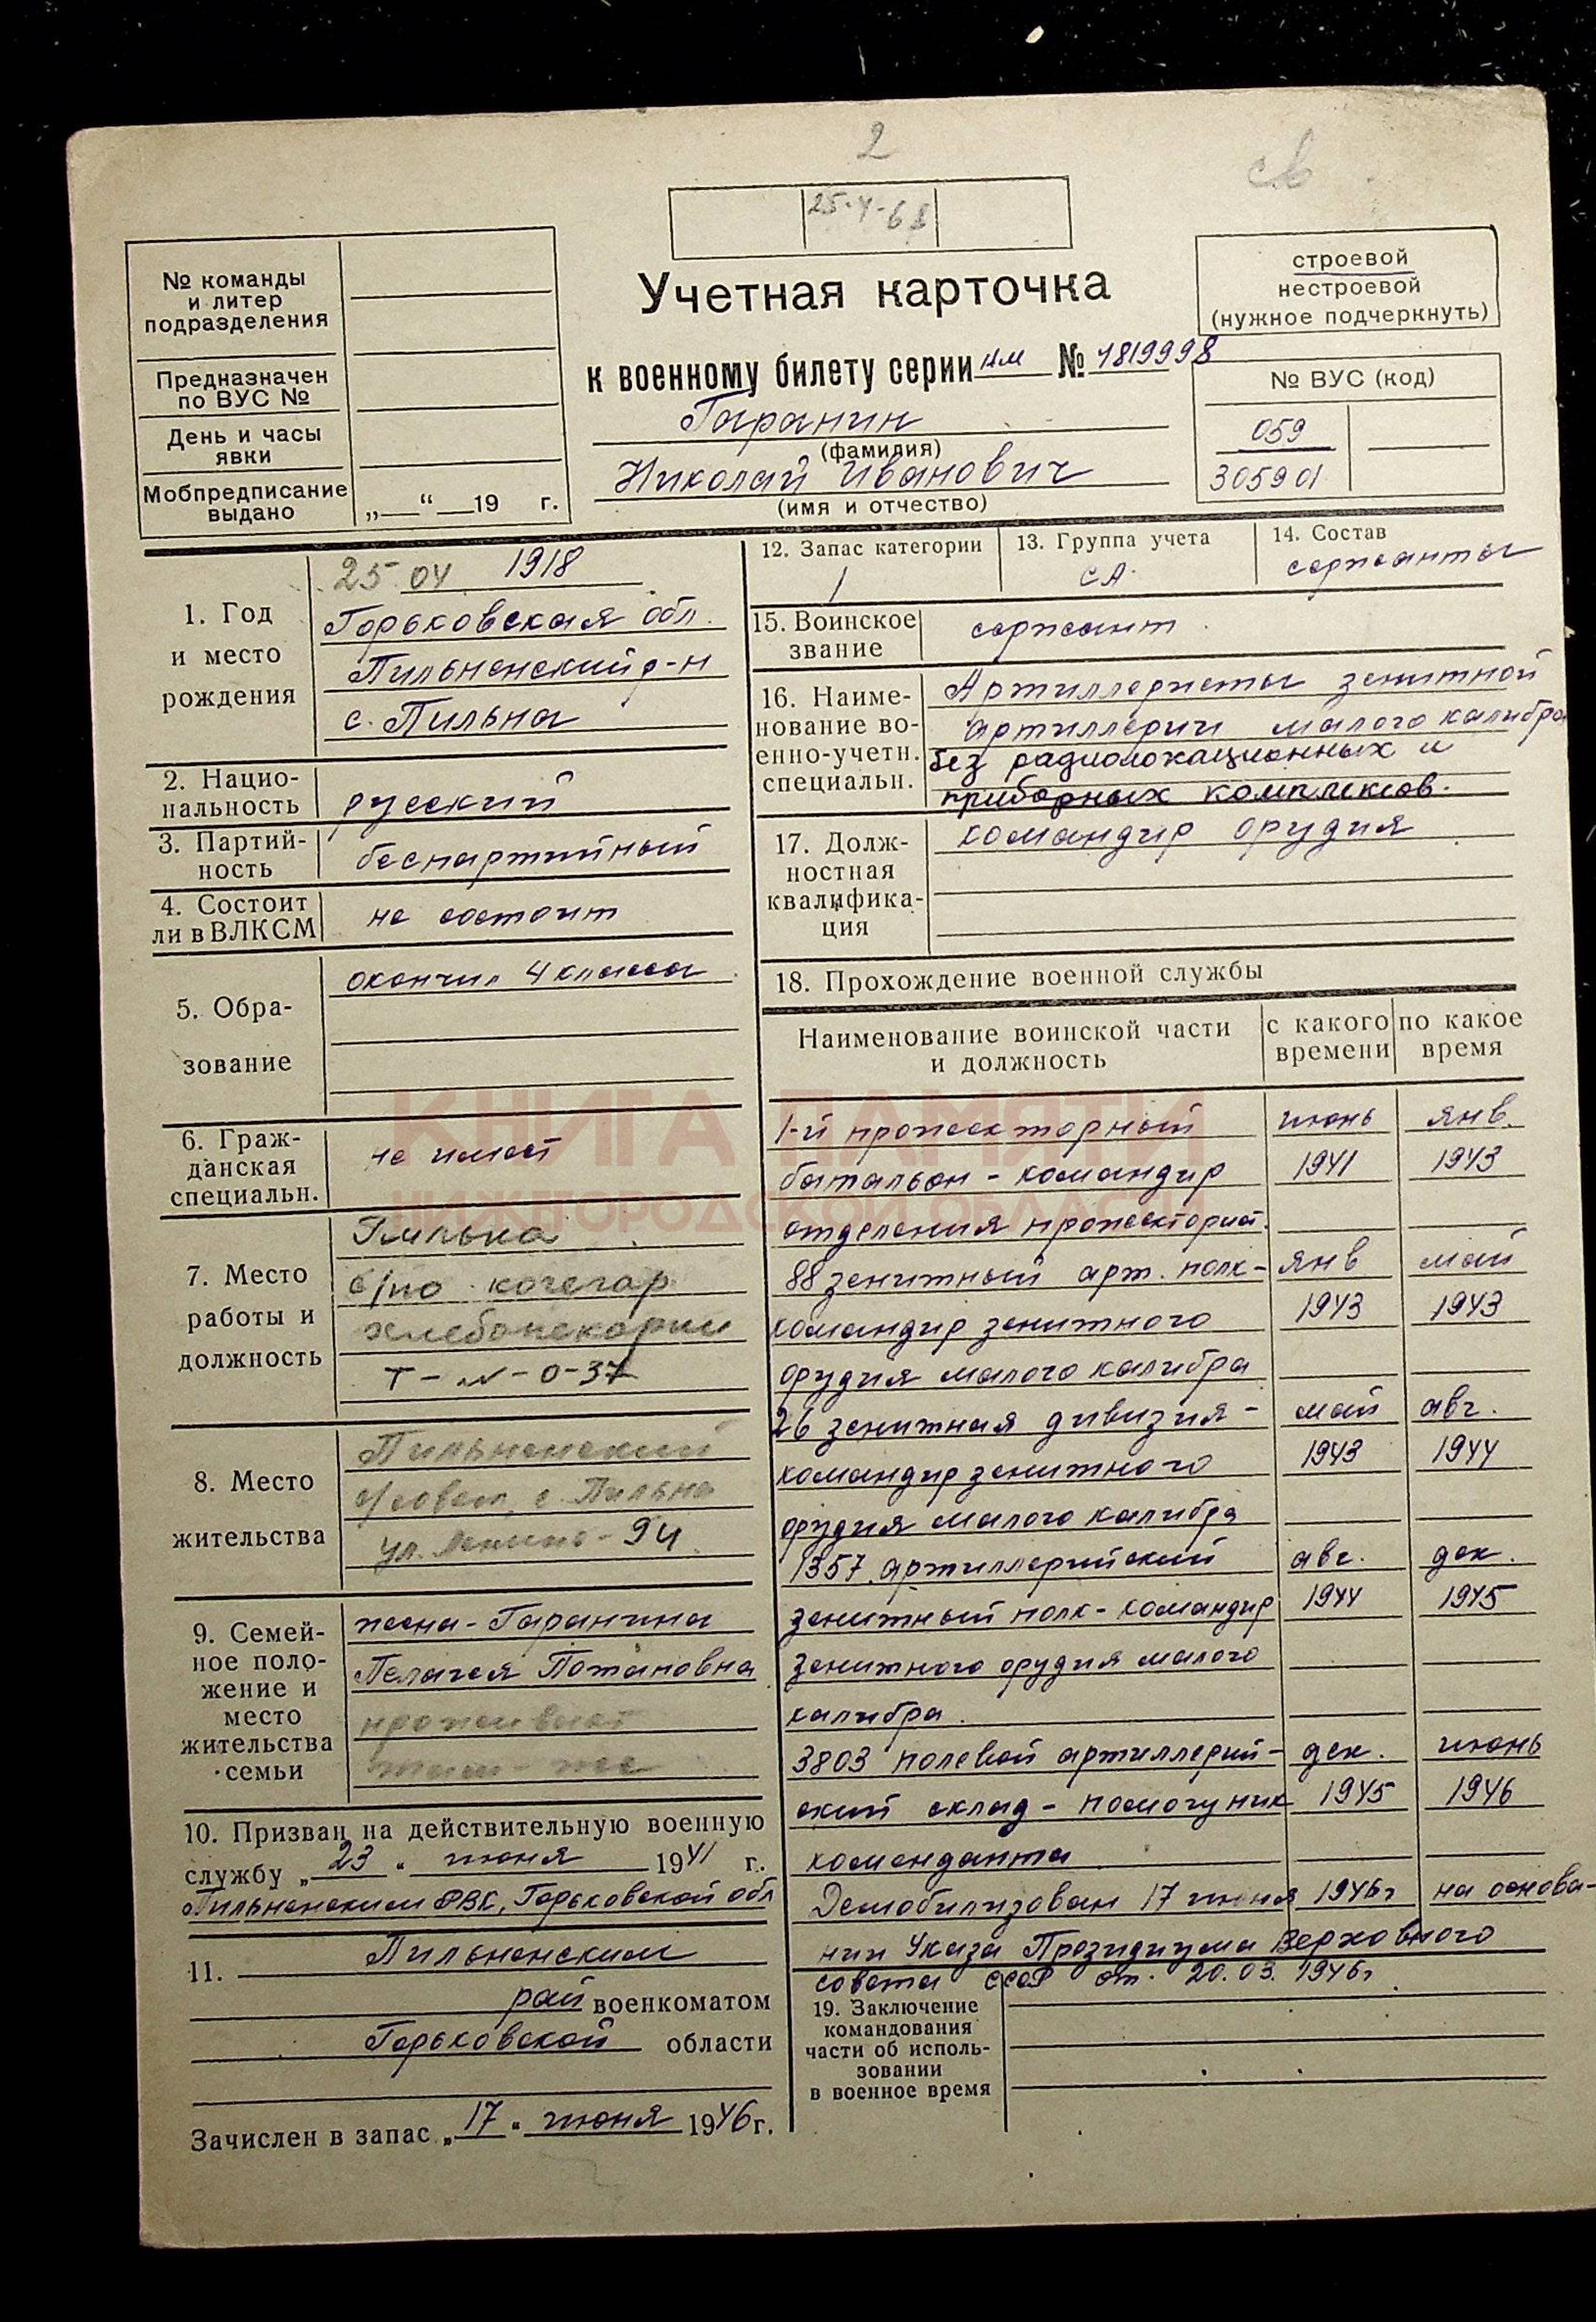 2
25-4-68
№ команды
и литер
подразделения
Предназначен
по ВУС №
День и часы
явки
Мобпредписание
выдано
„ “ 19 г.
Учетная карточка
к военному билету серии нм № 4819998
Гаранин
(фамилия)
Николай Иванович
(имя и отчество)
строевой
нестроевой
(нужное подчеркнуть)
№ ВУС (код)
059
305901
1. Год
и место
рождения
25.04 1918
Горьковская обл.
Пильненский р-н
с. Пильна
2. Нацио-
нальность
русский
3. Партий-
ность
беспартийный
4. Состоит
ли в ВЛКСМ
не состоит
5. Обра-
зование
окончил 4 класса
6. Граж-
данская
специальн.
не имеет
7. Место
работы и
должность
Пильна
с/по кочегар
хлебопекарни
Т-
-0-37
8. Место
жительства
Пильненский
с/совет, с. Пильна
ул. Ленина - 94
9. Семей-
ное поло-
жение и
место
жительства
семьи
жена - Гаранина
Пелагея Потаповна
проживает
там-же
10. Призван на действительную военную
службу „23“ июня 1941 г.
Пильненским РВК, Горьковской обл
11. Пильненским
рай военкоматом
Горьковской области
Зачислен в запас „17“ июня 1946 г.
12. Запас категории
1
13. Группа учета
СА
14. Состав
сержанты
15. Воинское
звание
сержант
16. Наиме-
нование во-
енно-учетн.
специальн.
Артиллеристы зенитной
артиллерии малого калибра
без радиолокационных и
приборных комплексов.
17. Долж-
ностная
квалифика-
ция
командир орудия
18. Прохождение военной службы
Наименование воинской части
и должность
с какого
времени
по какое
время
1-й прожекторный июнь янв.
батальон - командир 1941 1943
отделения прожекторист.
88 зенитный арт. полк- янв май
командир зенитного 1943 1943
орудия малого калибра
26 зенитная дивизия - май авг.
командир зенитного 1943 1944
орудия малого калибра
1357 артиллерийский авг. дек.
зенитный полк - командир 1944 1945
зенитного орудия малого
калибра.
3803 полевой артиллерий- дек. июнь
ский склад - помощник 1945 1946
коменданта
Демобилизован 17 июня 1946г на основа-
нии Указа Президиума Верховного
совета СССР от. 20.03. 1946г
19. Заключение
командования
части об исполь-
зовании
в военное время
КНИГА ПАМЯТИ
НИЖЕГОРОДСКОЙ ОБЛАСТИ